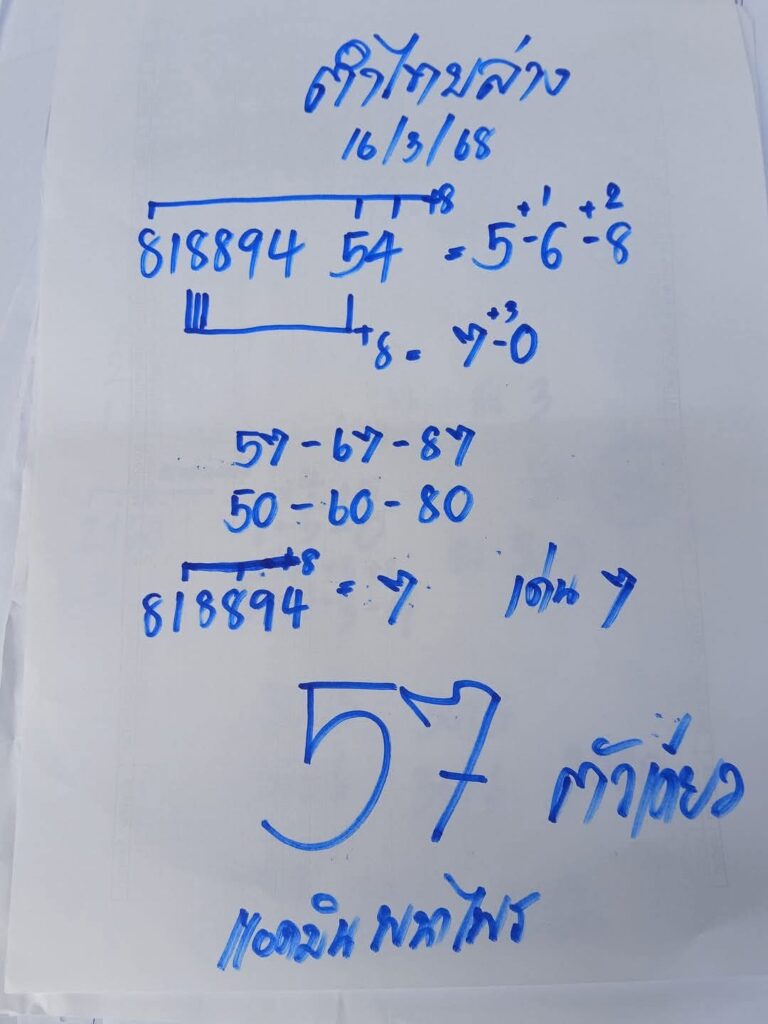 ตำไทยล่าง
16/3/68
+8
+1 +2
818894 54 = 5-6-8
+8 = 7-0
+3
57-67-87
50-60-80
+8
818894 = 7 เด่น 7
57 ตัวเดียว
แอดมิน พนาไพร